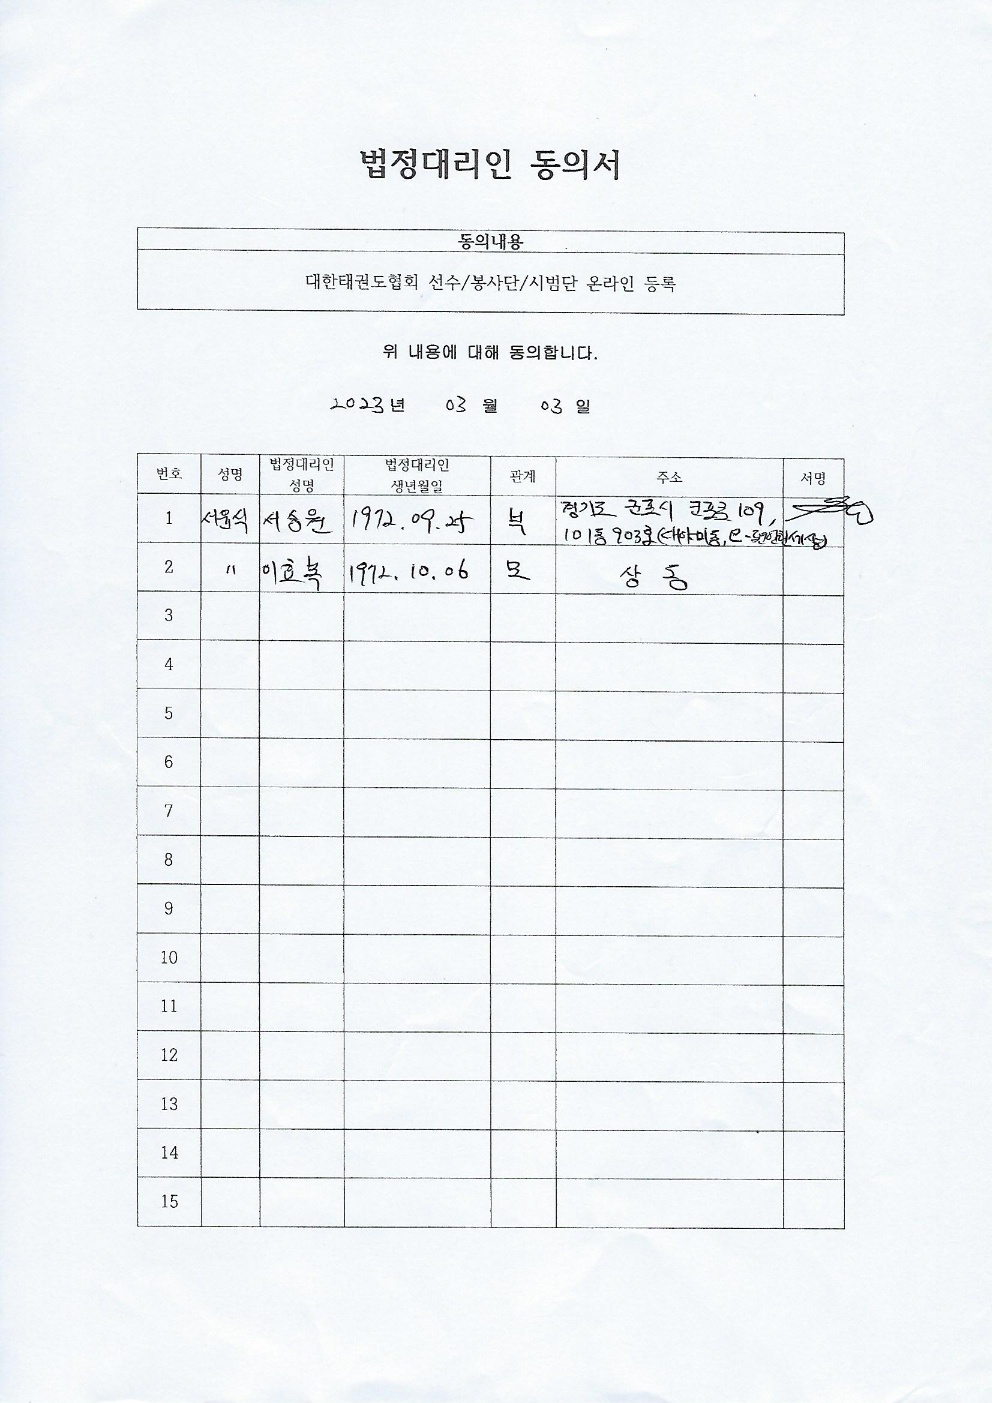 법정대리인 동의서
동의내용
대한태권도협회 선수/봉사단/시범단 온라인 등록
위 내용에 대해 동의합니다.
2023년 03 월 03 일
번호 성명 법정대리인 성명 법정대리인 생년월일 관계 주소 서명
1 서윤식 서승원 1972.09.25 부 경기도 군포시 군포로 109,
101동 903호(대야미동, e-편한세상)
2 〃 이효복 1972.10.06 모 상동
3
4
5
6
7
8
9
10
11
12
13
14
15